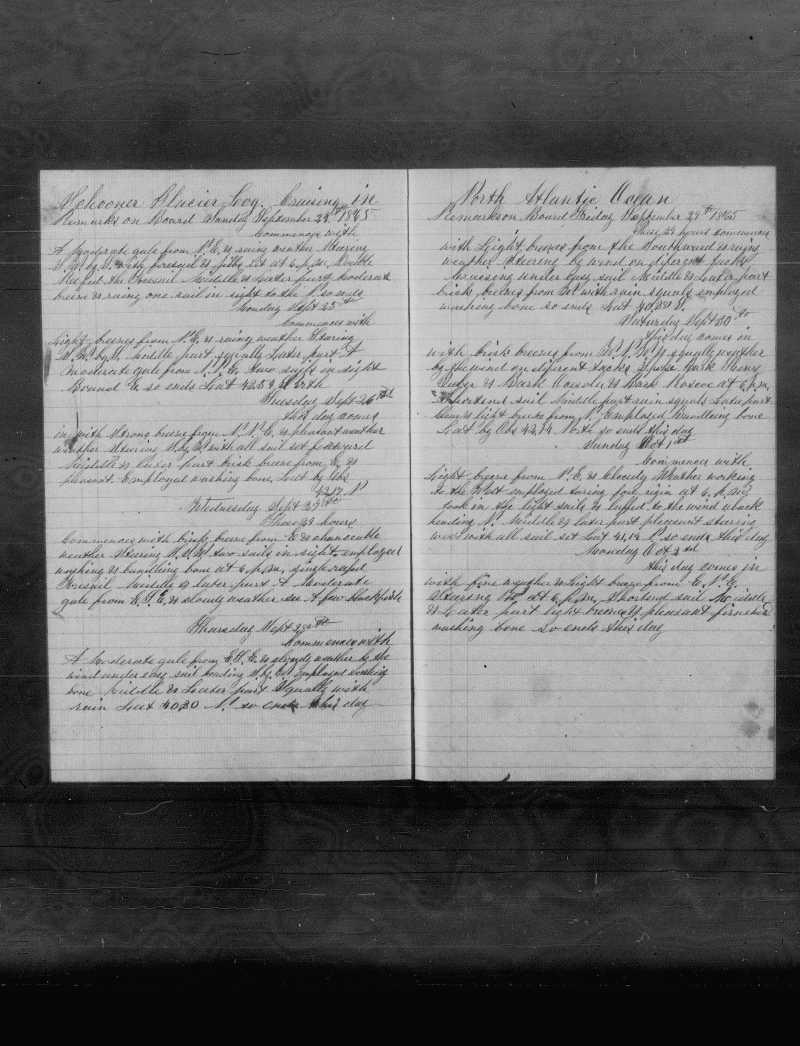 Schooner Glacier Loog. Cruising in
Remarks on Board Sunday September 24th 1865
Commences with
A Moderate gale from N.E. & rainy weather Steering
with foresail & jibb set at 6, p, m, Double
Reefed the Foresail Middle & Later part Moderate
breese & raing one sail in sight to the N. so ends
Monday Sept 25th
Commences with
Light breeses from N. E. & rainy weather Stering
Middle part squally Later part A
moderate gale from N. E, two sails in sight
Bound E. so ends Lat North
Tuesday Sept 26th
this day coms
in with Strong breese from N. N. E, & pleasant weather
weather Stering with all sail set forward
Middle & later part brisk breese from E, &
pleasant Employed washing bone, Lat by Obs
42,17 N
Wednesday Sept 27th
These 24 hours
Commences with brisk breese from E & changeable
weather Stering two sails in sight employed
washing & bundling bone at 6, p, m, single reefed
Foresail Middle & later part A Moderate
gale from & cloudy weather see A few blackfish
Thursday Sept 28th
Commences with
A Moderate gale from & cloudy weather by the
wind under easy sail heading employed washing
bone Middle & Later part Squally with
rain Lat 40,20 N. so ends this day
North Atlantic Ocean
Remarks on Board Friday September 29th 1865
These 24 hours commences
with Light breeses from the Southward & rainy
weather Steering by wind on diferent tacks
cruising under easy sail Middle & Later part
brisk breeses from with rain squals employed
washing bone so ends Lat
Saturday Sept 30th
This day comes in
with brisk breeses from squally weather
by the wind on diferent tacks Spoke Bark Henry
& Bark & Bark Roscoe at 6, p, m,
Shortend sail Middle part rain squals Later part
& light breese from N. Employed Bundling bone
Lat by Obs North so ends this day
Sunday Oct 1st
Commences with
Light breese from N. E. & Cloudy Weather working
to the West employed taring fore rigin at 6, p, m,
took in the light sails & luffed to the wind aback
heading N. Middle & later part pleasent stearing
west with all sail set Lat 41,14 N. so ends this day
Monday Oct 2nd
this day comes in
with fine weather & Light breese from E. N. E.
Stearing at 6, p, m, Shortend sail Middle
& Later part light breese & pleasant finished
washing bone so ends this day